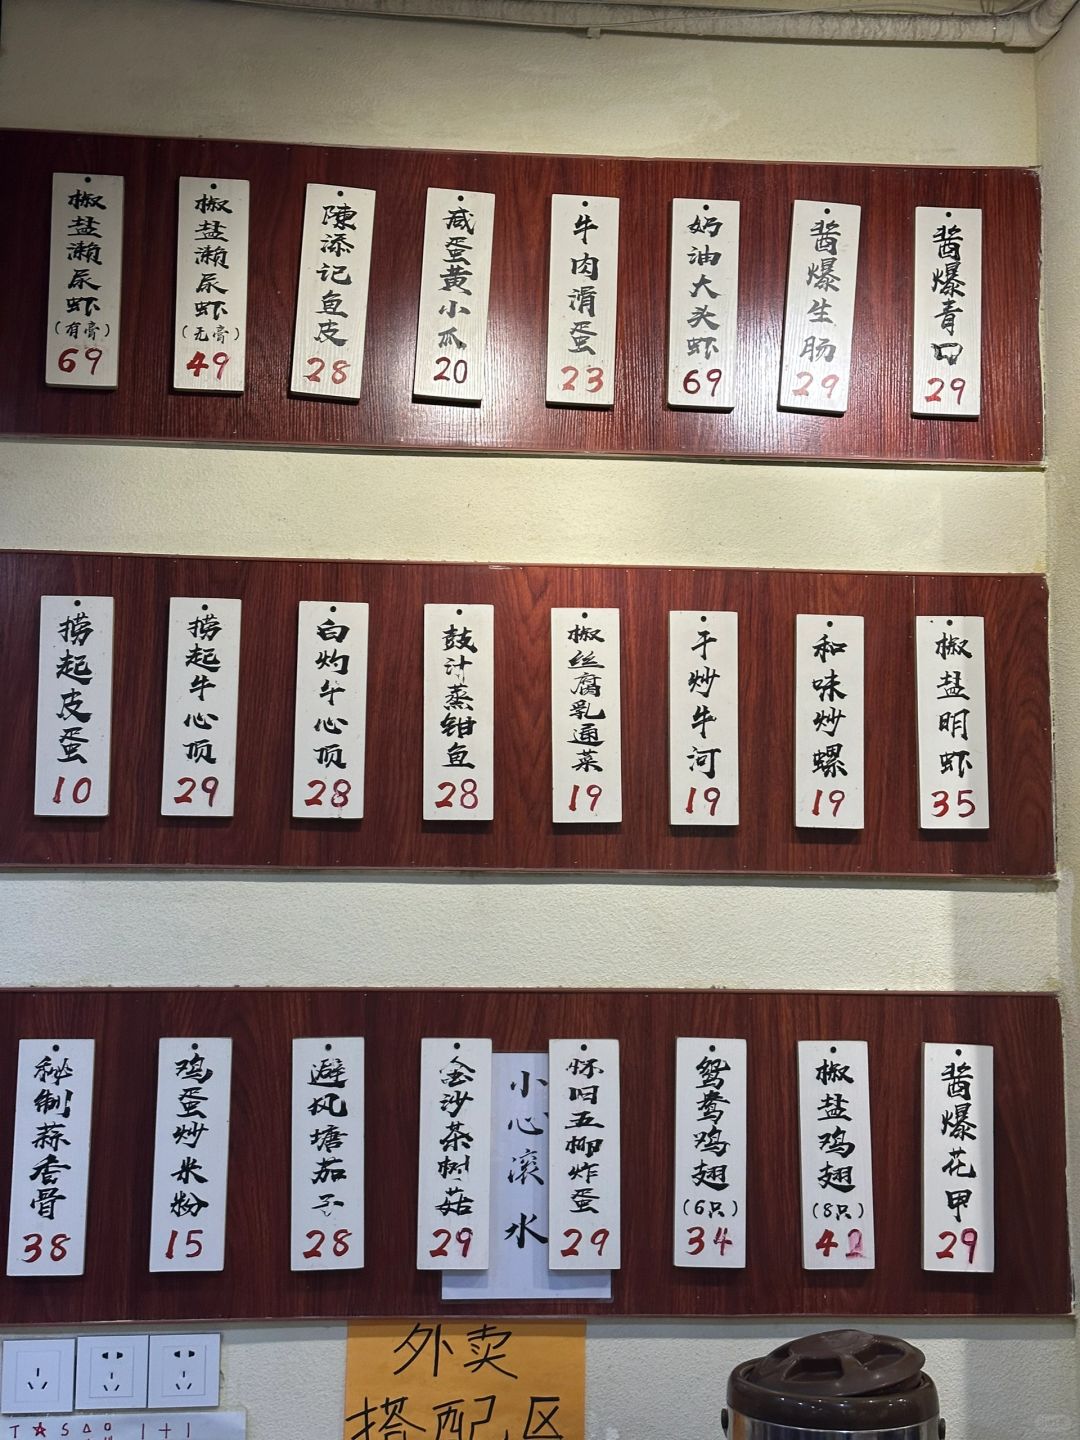 椒盐濑尿虾
(有膏)
69
椒盐濑尿虾
(无膏)
49
陳添记鱼皮
28
咸蛋黄小瓜
20
牛肉滑蛋
23
奶油大头虾
69
酱爆生肠
29
酱爆青口
29
捞起皮蛋
10
捞起牛心顶
29
白灼牛心顶
28
鼓汁蒸钳鱼
28
椒丝腐乳通菜
19
干炒牛河
19
和味炒螺
19
椒盐明虾
35
秘制蒜香骨
38
鸡蛋炒米粉
15
避风塘茄子
28
金沙茶树菇
29
小心滚水
怀旧五柳炸蛋
29
鸳鸯鸡翅
(6只)
34
椒盐鸡翅
(8只)
42
酱爆花甲
29
外卖
搭配区